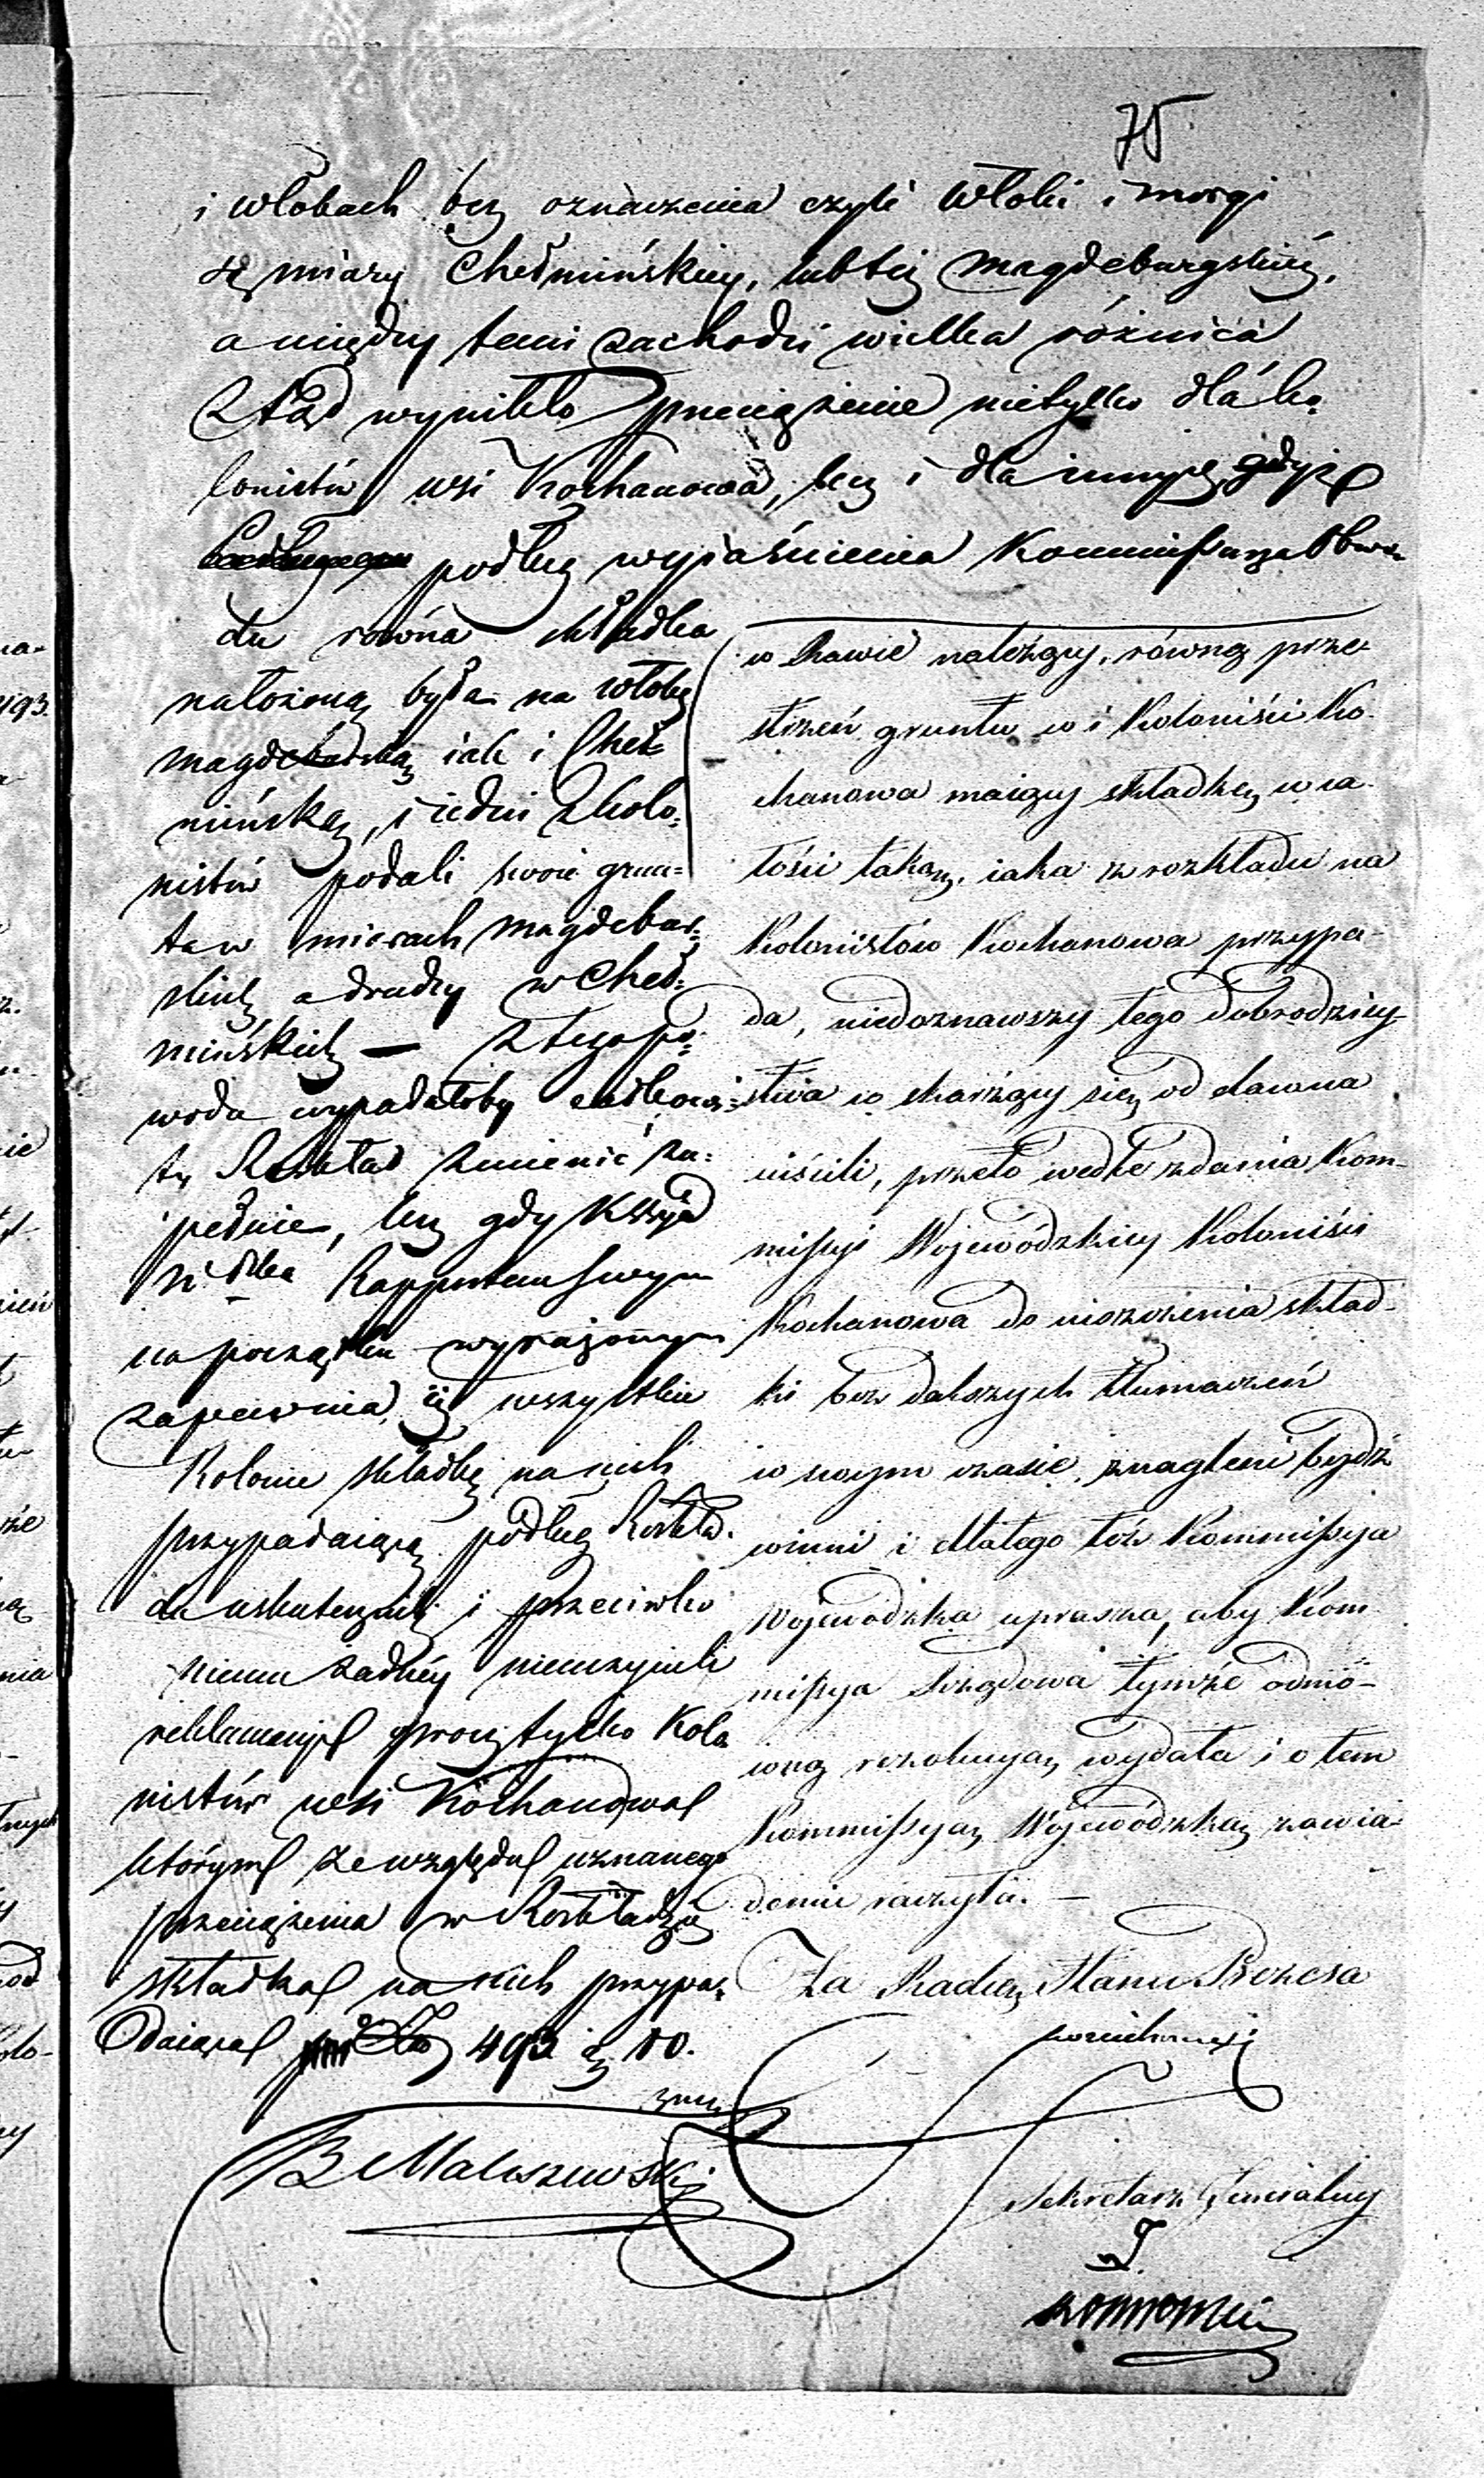 75
i włokach bez oznaczenia czyli włoki i morgi
są miary Chełmińskiey, lub też Magdeburgskiéy,
a między temi zachodzi wielka różnica
Ztąd wynikło przeciążenie nietylko dla ko-
lonistów wsi Kochanowa, lecz i dla innych, gdyż
podług wyiaśnienia Kommissarza Obwo-
du równa składka
nałożoną była na włokę
magdeburską iak i Cheł-
mińską, i iedni z kolo-
nistów podali swoie grun-
ta w miarach Magdebur-
skich a drudzy w Cheł-
mińskich — Z tego po-
wodu wypadałoby całkowi-
ty Rozkład zmienić zu-
pełnie, lecz gdy
Rapportem swym
na początku wyrażonym
zapewnia, iż wszystkie
Kolonie składkę na nich
przypadaiącą podług Rozkła-
du uskuteczniły i przeciwko
niemu żadney nieuczyniły
reklamacyi oprocz tylko Kolo-
nistów wsi Kochanowa
którym ze względu uznanego
przeciążenia w Rozkładzie
składka na nich przypa-
daiąca 493 10.
B Maluszewski
w Rawie należący, równą prze-
strzeń gruntu co i Koloniści Ko-
chanowa maiący składkę w ca-
łości taką, iaka z rozkładu na
Kolonistów Kochanowa przypa-
da, niedoznawszy tego dobrodziey-
stwa co skarżący się od dawna
uiścili, przeto wedle zdania Kom-
missyi Wojewódzkiey Koloniści
Kochanowa do uiszczenia skład-
ki bez dalszych tłumaczeń
w swym czasie, znagleni bydź
winni i dlatego też Kommissya
Wojewódzka uprasza, aby Kom-
missya Rządowa tymże odmo-
wną rezolucyą wydała i o tem
Kommissyą Wojewódzką zawia-
domić raczyła. —
Za Radcę Stanu Prezesa
Sekretarz Generalny